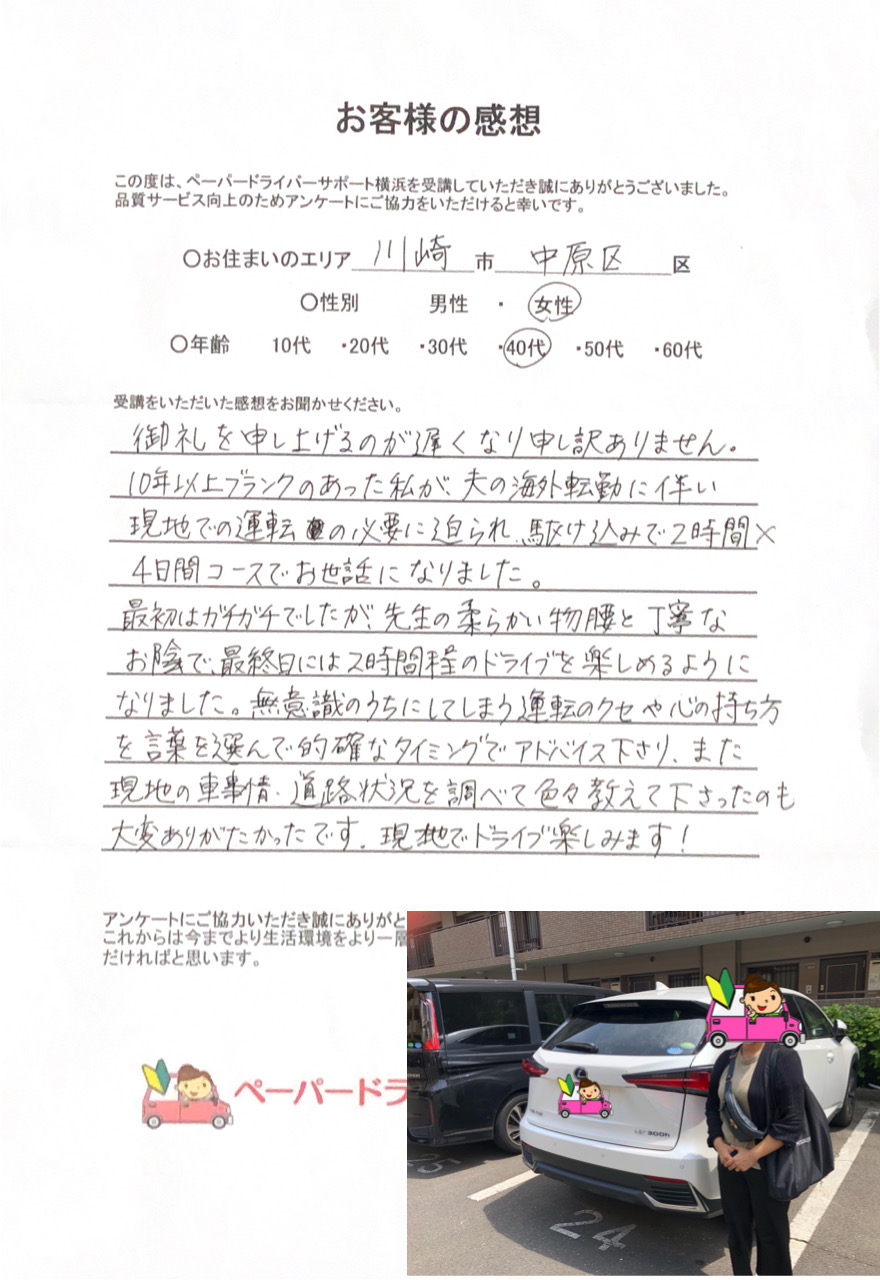 お客様の感想
この度は、ペーパードライバーサポート横浜を受講していただき誠にありがとうございました。
品質サービス向上のためアンケートにご協力をいただけると幸いです。
〇お住まいのエリア 川崎 市 中原区 区
〇性別 男性 ・ 女性
〇年齢 10代 ・20代 ・30代 ・40代 ・50代 ・60代
受講をいただいた感想をお聞かせください。
御礼を申し上げるのが遅くなり申し訳ありません。
10年以上ブランクのあった私が、夫の海外転勤に伴い
現地での運転の必要に迫られ、駆け込みで2時間×
4日間コースでお世話になりました。
最初はガチガチでしたが、先生の柔らかい物腰と丁寧な
お陰で、最終日には2時間程のドライブを楽しめるように
なりました。無意識のうちにしてしまう運転のクセや心の持ち方
を言葉を選んで的確なタイミングでアドバイス下さり、また
現地の車事情、道路状況を調べて色々教えて下さったのも
大変ありがたかったです。現地でドライブ楽しみます!
アンケートにご協力いただき誠にありがと
これからは今までより生活環境をより一層
だければと思います。
ペーパードラ
300h
25
24